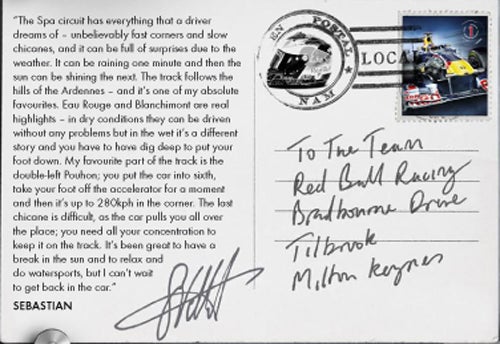 "The Spa circuit has everything that a driver
dreams of – unbelievably fast corners and slow
chicanes, and it can be full of surprises due to the
weather. It can be raining one minute and then the
sun can be shining the next. The track follows the
hills of the Ardennes – and it's one of my absolute
favourites. Eau Rouge and Blanchimont are real
highlights – in dry conditions they can be driven
without any problems but in the wet it's a different
story and you have to have dig deep to put your
foot down. My favourite part of the track is the
double-left Pouhon; you put the car into sixth,
take your foot off the accelerator for a moment
and then it's up to 280kph in the corner. The last
chicane is difficult, as the car pulls you all over
the place; you need all your concentration to
keep it on the track. It's been great to have a
break in the sun and to relax and
do watersports, but I can't wait
to get back in the car."
SEBASTIAN
EN POSTAL
NAM
LOCAL
To The Team
Red Bull Racing
Bradbourne Drive
Tilbrook
Milton Keynes